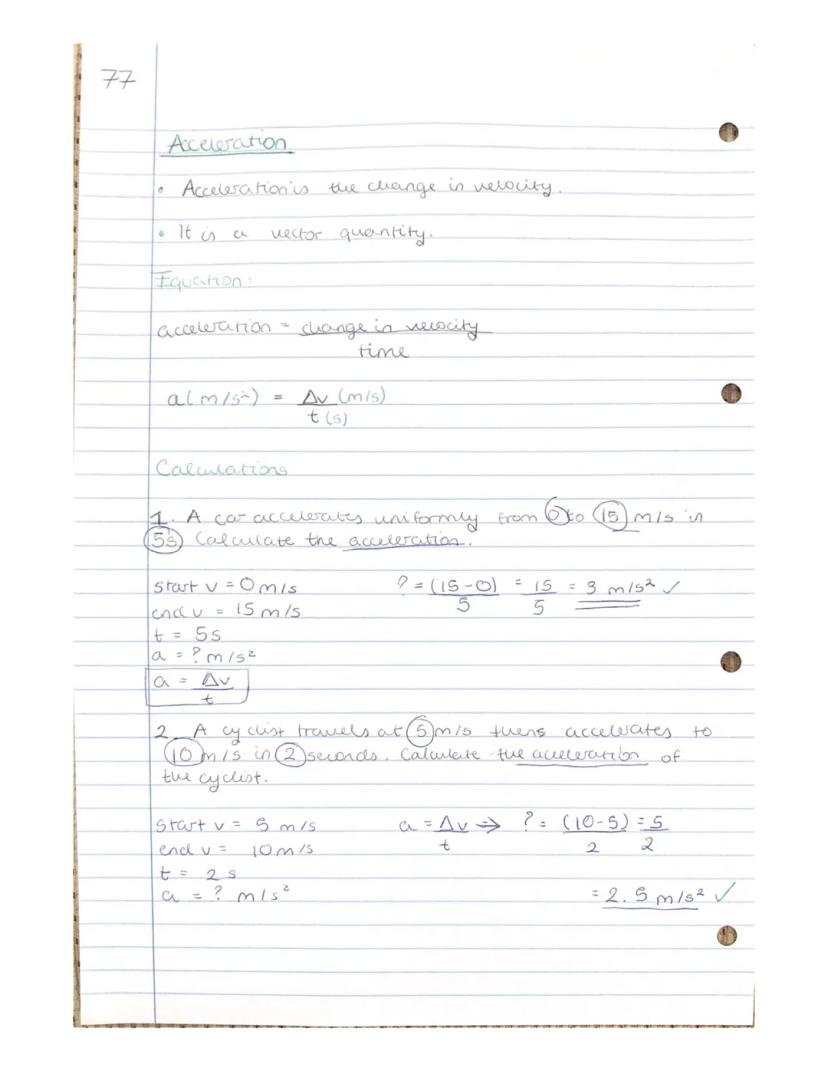 77
Acceleration
• Acceleration is the change in velocity.
• It is a vector quantity.
Equation:
acceleration = change in velocity
time
a(m/s²) = Δv (m/s)
t (s)
Calculations
1. A car accelerates uniformly from 0 to 15 m/s in
5s. Calculate the acceleration.
start v = 0 m/s ? = (15-0) = 15 = 3 m/s² ✓
end v = 15 m/s 5 5
t = 5s
a = ? m/s²
a = Δv
t
2. A cyclist travels at 5 m/s thens accelerates to
10 m/s in 2 seconds. Calculate the acceleration of
the cyclist.
start v = 5 m/s a = Δv → ? = (10-5) = 5
end v = 10 m/s t 2 2
t = 2s
a = ? m/s² = 2.5 m/s² ✓